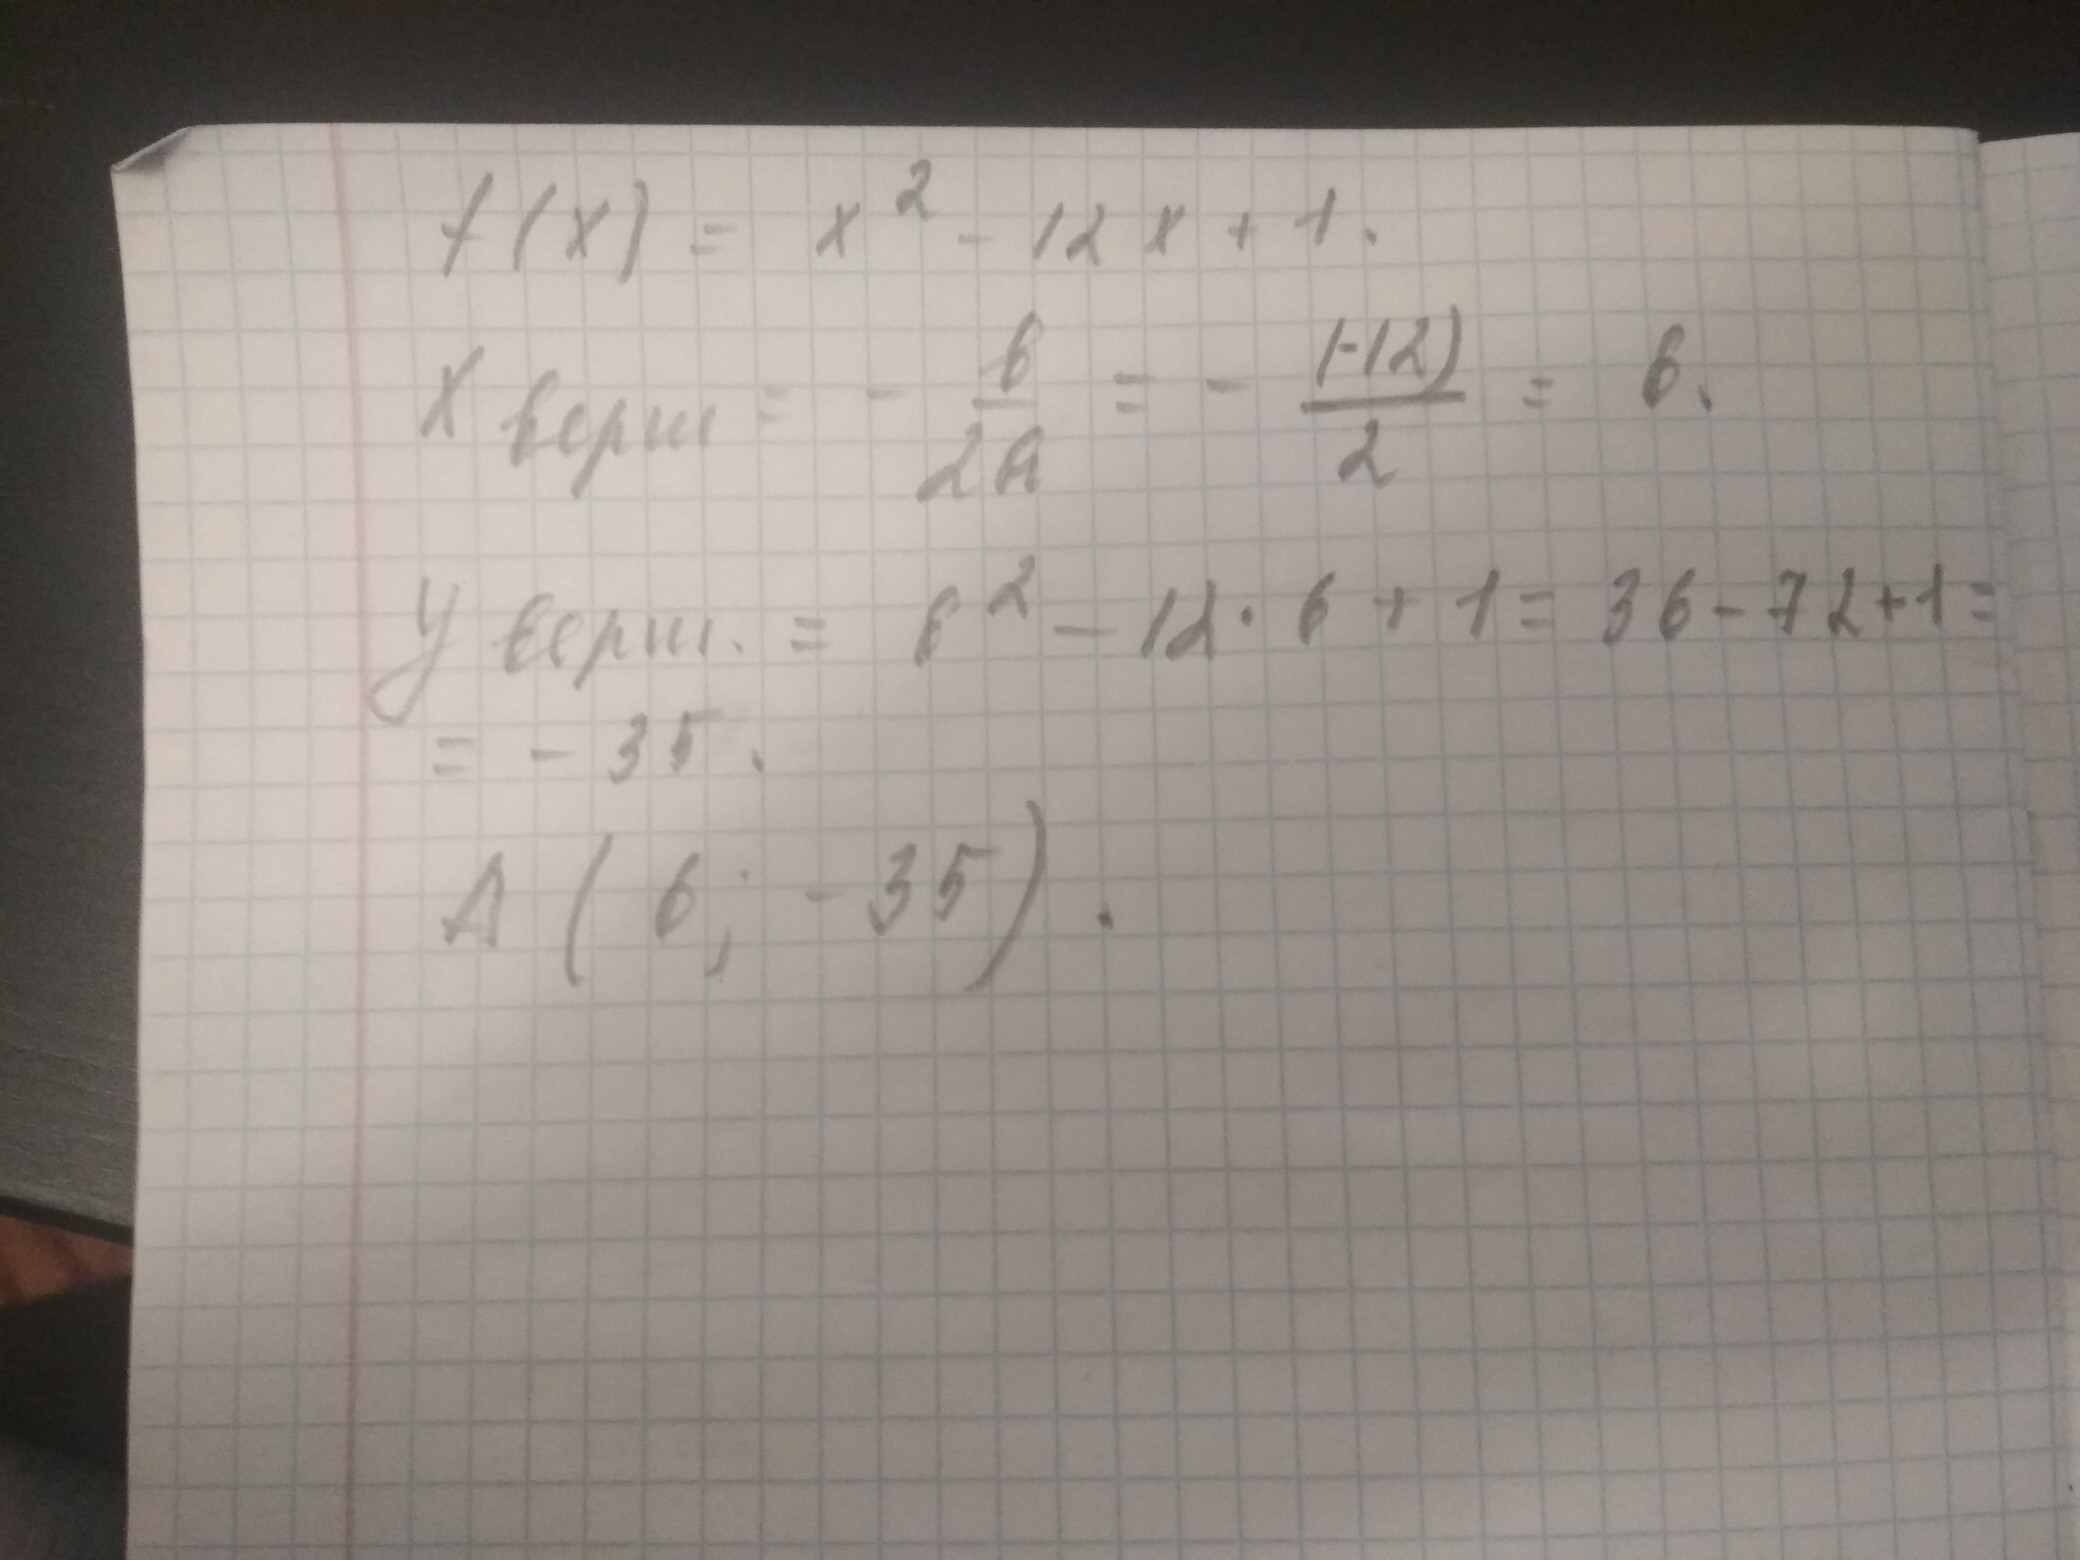 f(x) = x² - 12x + 1.
X верш = - в/2а = - (-12)/2 = 6.
У верш. = 6² - 12 · 6 + 1 = 36 - 72 + 1 =
= - 35.
А ( 6; - 35).